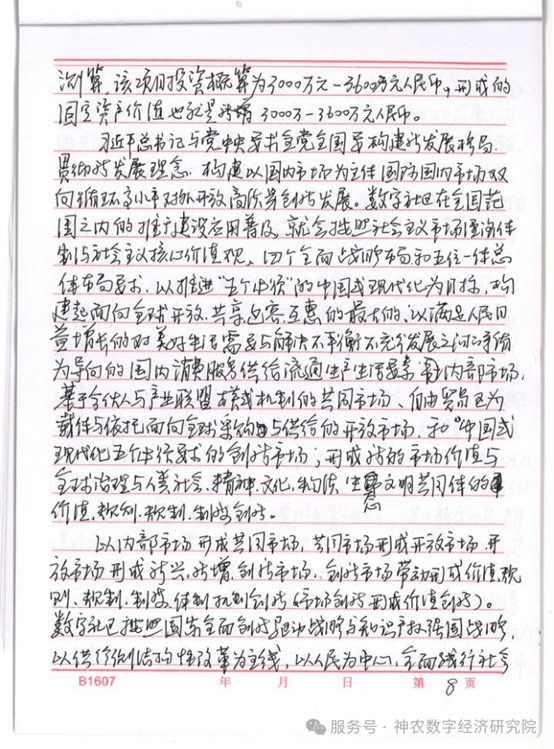 测算，该项目投资概算为3000万元—3600万元人民币，形成的
固定资产价值也就是新增 3000万—3600万元人民币。
习近平总书记与党中央要求全党全国要构建新发展格局、
贯彻新发展理念，构建以国内市场为主体国际国内市场双
向循环高水平对外开放高质量创新发展。数字社区在全国范
围之内的推广建设应用普及，就会按照社会主义市场经济体
制与社会主义核心价值观、四个全面战略布局和五位一体总
体布局要求，以推进"五个中国"的中国式现代化为目标，构
建起面向全球开放、共享包容互惠的最大的、以满足人民日
益增长的对美好生活需要与解决不平衡不充分发展之间矛盾
为导向的国内消费服务供给流通生产生活要素内部市场，
基于合伙人与产业联盟模式机制的共同市场、自由贸易区为
载体与依托面向全球采购与供给的开放市场，和"中国式
现代化五个中国要求的创新市场；形成新的市场价值与
全球治理与人类社会、精神、文化、物质、生态文明共同体的
价值、规则、规制、制度创新。
以内部市场形成共同市场，共同市场形成开放市场，开
放市场形成新兴、新增、创新市场，创新市场带动形成价值、规
则、规制、制度、体制机制创新（市场创新形成价值创新）。
数字社区按照国家全面创新驱动战略与知识产权强国战略，
以供给侧结构性改革为主线，以人民为中心，全面践行社会
B1607 年 月 日 第 8 页
服务号 · 神农数字经济研究院